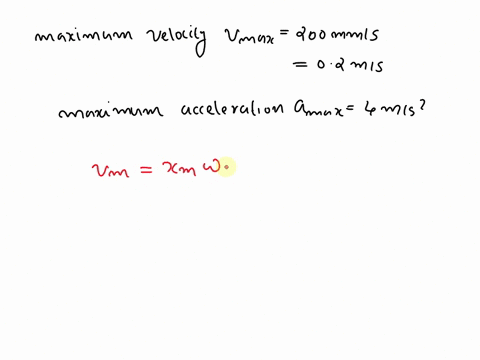 maximum velocity vmax = 200 mm/s
= 0.2 m/s
maximum acceleration amax = 4 m/s²
vm = xm ω